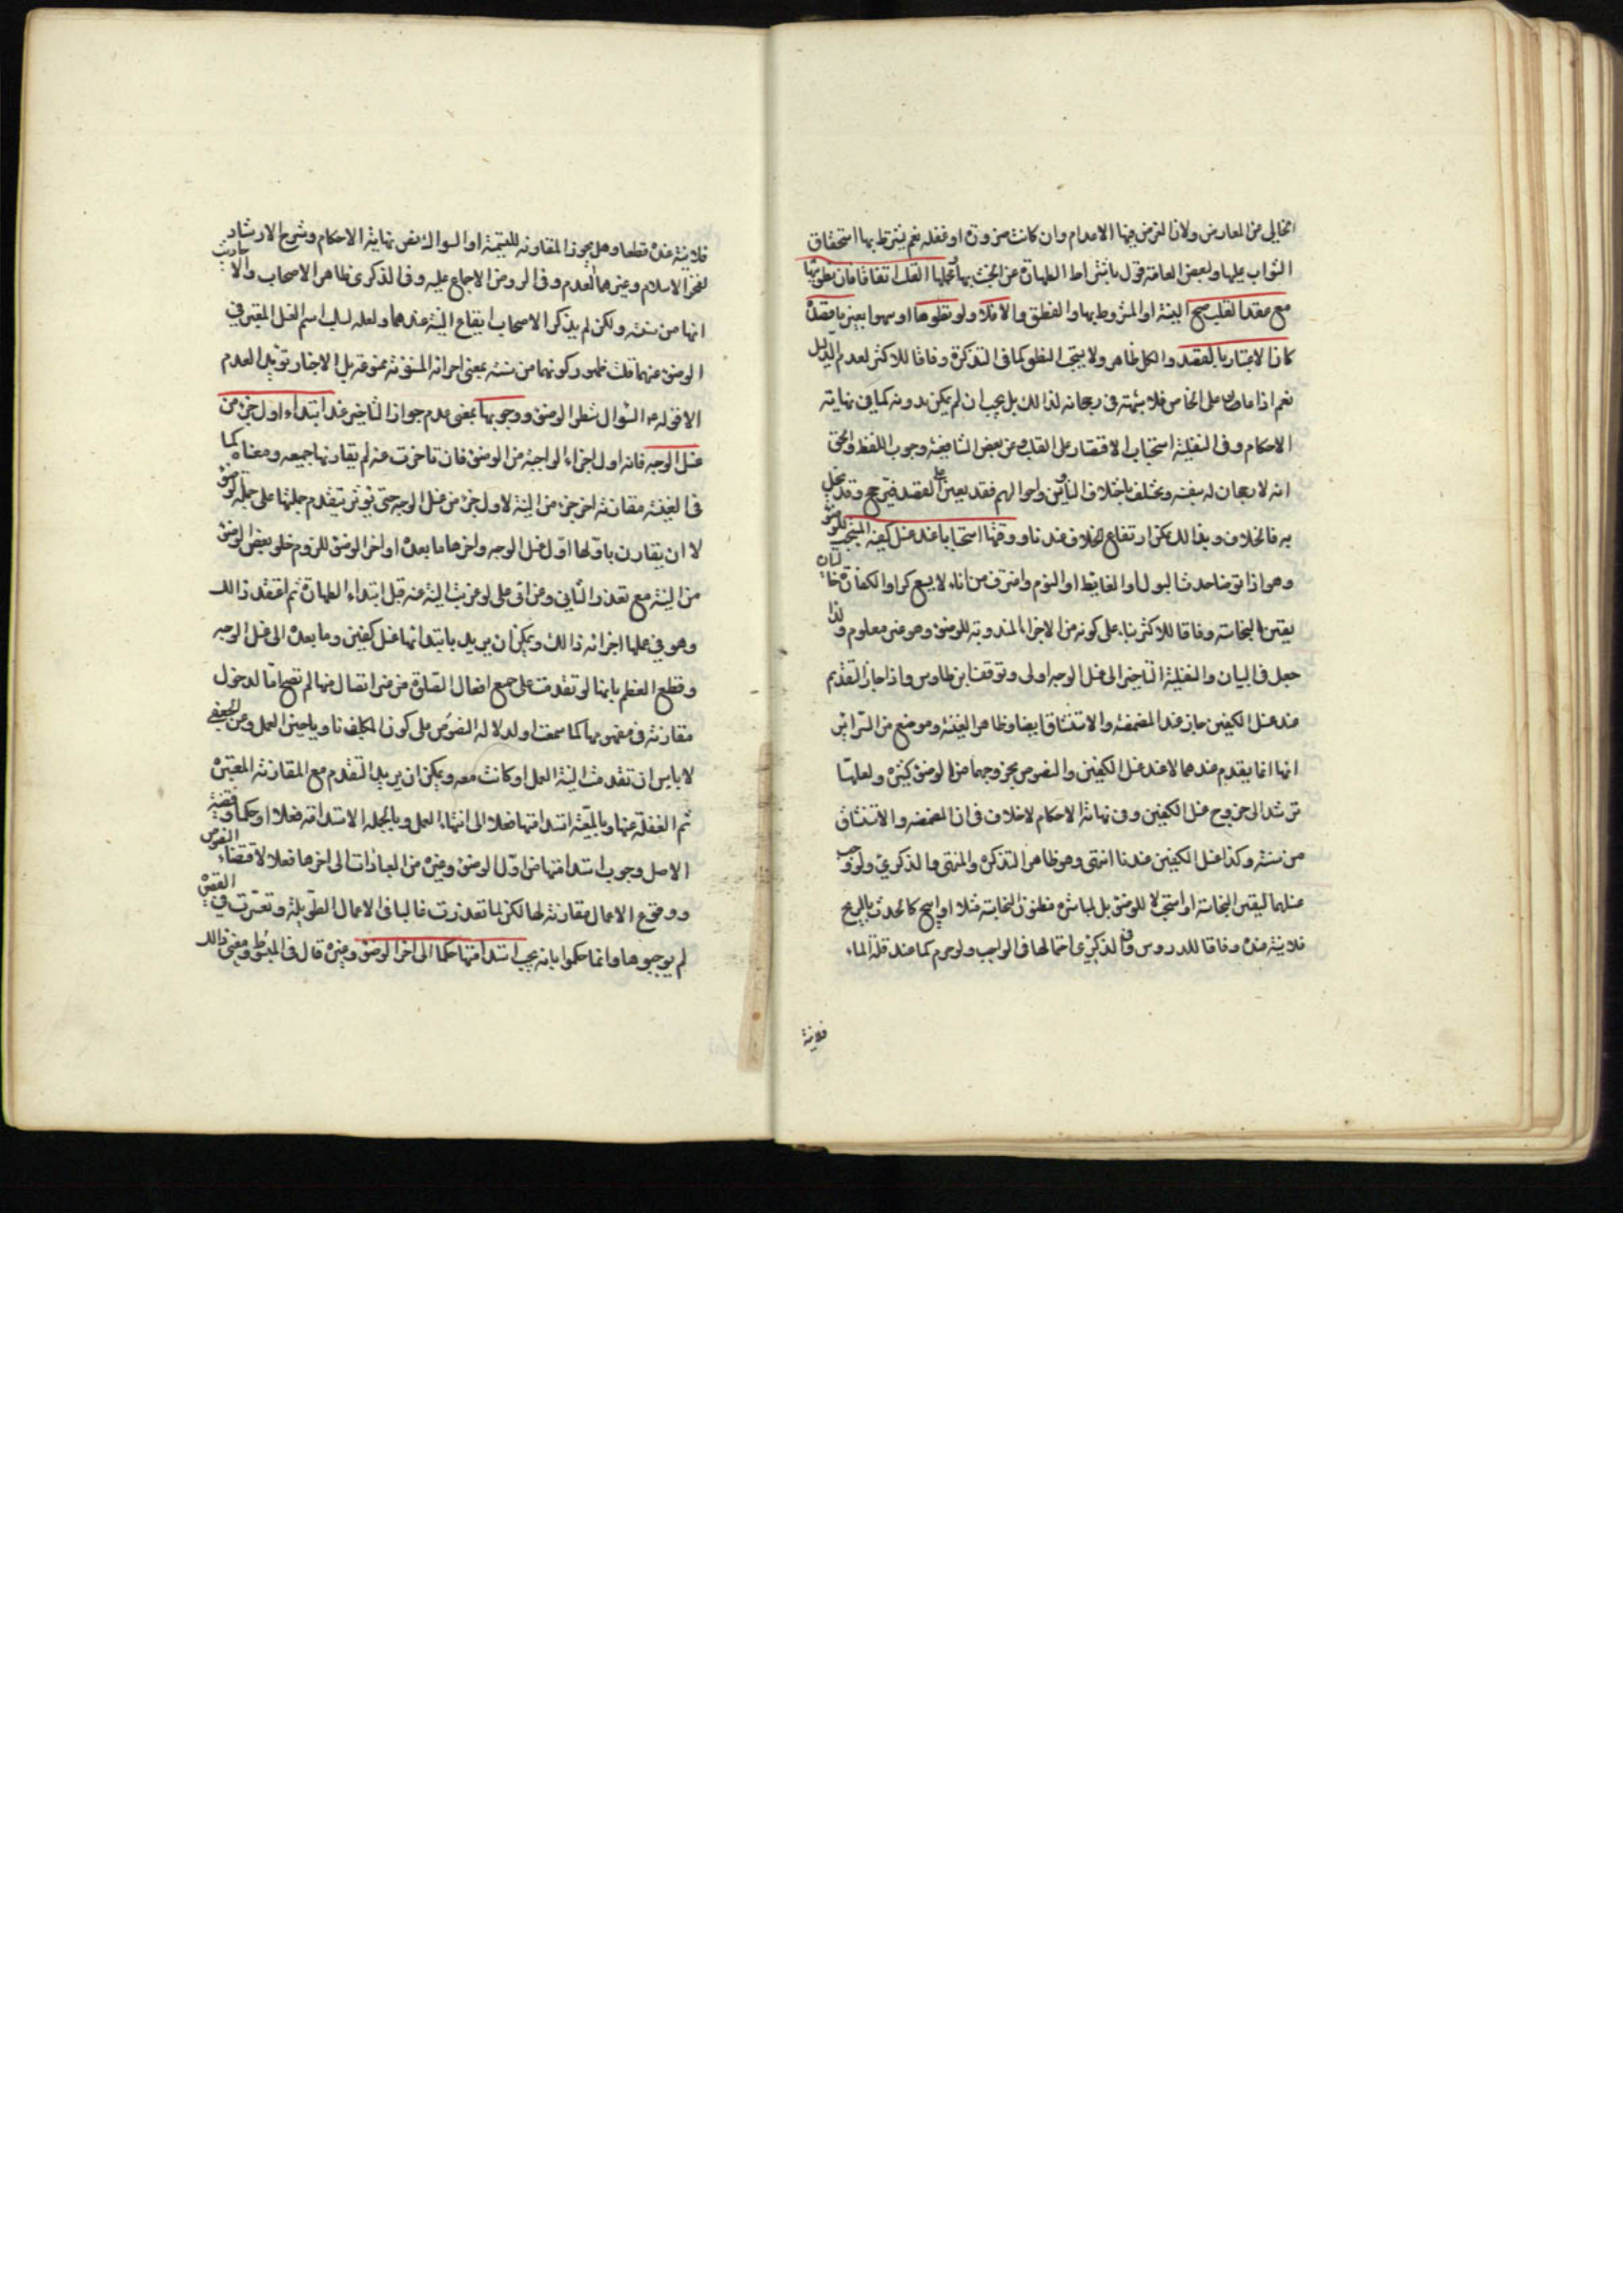 الخالي من المعارض ولان الغرض فيها الاعدام وان كانت ضرورة او غفله نعم يشترط بها استحقاق
الثواب عليها ولبعض العامة قول باشتراط الطهارة عن الخبث بها ومحلها القلب اتفاقا فان نطق بها
مع عقد القلب صح النية او المشروط بها والنطق والا فلا ولو نطق سهوا بغير ما عقده
كان الاعتبار بالعقد والكل ظاهر ولا يستحب النطق كما في التذكرة وفاقا للاكثر لعدم الدليل
نعم اذا اعان على الخاص فلا شبهة في رجحانه لذلك بل يجب ان لم يكن بدونه كما في نهاية
الاحكام وفي النفلية استحباب الاقتصار على القلب وعن بعض الشافعية وجوب اللفظ والحق
انه لا رجحان له بنفسه ويختلف باختلاف الناوين واحوالهم فقد يعين على العقد فيترجح وقد يخل
به فالخلاف وبذلك يمكن ارتفاع الخلاف عندنا ووقتها استحبابا عند غسل كفيه المستحب للوضوء
وهو اذا توضا حدث البول او الغايط او النوم واغترف من اناء لا يسع كرا والكفان خاليتان
يقين النجاسة وفاقا للاكثر بناء على كونه من الاجزاء المندوبة للوضوء وهو غير معلوم ولذا
جعل في البيان والنفلية التاخير الى غسل الوجه اولى وتوقف ابن طاوس واذا جاز التقديم
عند غسل الكفين جاز عند المضمضه والاستنشاق ايضا وظاهر الغنية وموضع من السرائر
انها انما يقدم عندهما لا عند غسل الكفين والنصوص بخروجهما من الوضوء كثيرة ولعلها
ترشد الى خروج غسل الكفين وفي نهاية الاحكام لا خلاف في ان المضمضه والاستنشاق
من سننه وكذا غسل الكفين عندنا انتهى وهو ظاهر التذكرة والمنتهى والذكرى ولو وجب
غسلهما ليقين النجاسة او استحب لا للوضوء بل لمباشرة مظنون النجاسة مثلا او ابيح كالحدث بالريح
فلا نية عنده وفاقا للدروس وفي الذكرى احتمالها في الواجب ولو حرم كما عند قلة الماء
فلا نية
فلا نية عنده قطعا وهل يجوز المقارنه للتسمية او السواك نص نهاية الاحكام وشرح الارشاد
لفخر الاسلام وغيرهما العدم وفي الروض الاجماع عليه وفي الذكرى ظاهر الاصحاب والاحاديث
انها من سننه ولكن لم يذكر الاصحاب ايقاع النية عندهما ولعله لسلب اسم الغسل المعتبر في
الوضوء عنهما قلت ظهور كونهما من سننه بمعنى اجزائه المسنونة ممنوعة بل الاخبار تؤيد العدم
الا قوله ع السواك شطر الوضوء ووجوبها بمعنى عدم جواز التاخير عند ابتداء اول جزء من
غسل الوجه فانه اول اجزاء الواجبة من الوضوء فان تاخرت عنه لم يقارنها جميعه ومعناه كما
في الغنية مقارنة اخر جزء من النية لاول جزء من غسل الوجه حتى يؤثر بتقدم جملتها على جملة الوضوء
لا ان يقارن باولها اول غسل الوجه واخرها ما بعده او اخر الوضوء للزوم خلو بعض الوضوء
من النية مع تعذر الثاني وعن ابي علي لو عزبت النية عنه قبل ابتداء الطهارة ثم اعتقد ذلك
وهو في عملها اجزائه ذلك ويمكن ان يريد بابتدائها غسل كفين وما بعده الى غسل الوجه
مقارنة في مفهومها كما سمعت اولا ولدلالة النصوص على كون المكلف ناويا حين العمل وعن الجعفي
لا باس ان تقدمت النية العمل او كانت معه ويمكن ان يريد التقدم مع المقارنة المعتبرة
الاصل وجوب استدامتها من اول الوضوء وغيره من العبادات الى اخرها فعلا لاقتضاء النصوص
ووقوع الاعمال مقارنة لها لكن لما تعذرت غالبا في الاعمال الطويلة وتعسرت في القصيرة
لم يوجبوها وانما حكموا بانه يجب استدامتها حكما الى اخر الوضوء وغيره قال في المبسوط ومعنى ذلك